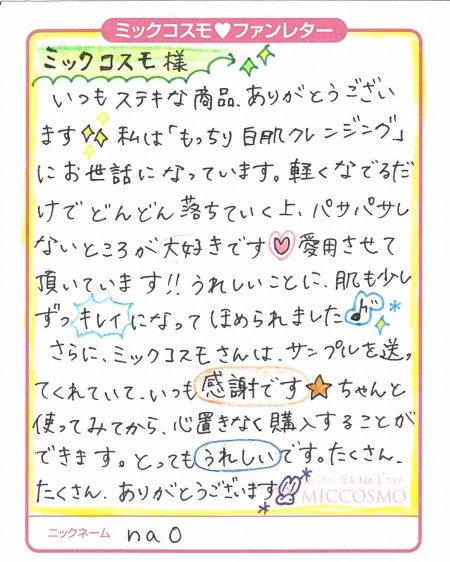 ミックコスモ♥ファンレター
ミックコスモ様
いつもステキな商品、ありがとうござい
ます 私は「もっちり白肌クレンジング」
にお世話になっています。軽くなでるだ
けでどんどん落ちていく上、パサパサし
ないところが大好きです♡愛用させて
頂いています!!うれしいことに、肌も少し
ずつキレイになってほめられました♪
さらに、ミックコスモさんは、サンプルを送っ
てくれていて、いつも感謝です★ちゃんと
使ってみてから、心置きなく購入することが
できます。とってもうれしいです。たくさん、
たくさん、ありがとうございます
No.1
MICCOSMO
ニックネーム naO